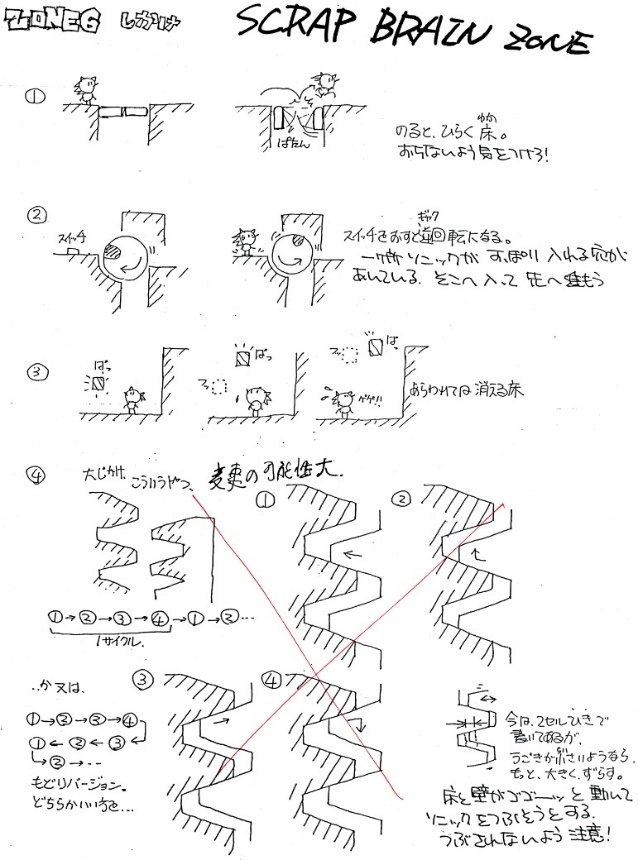 ZONE6 しかけ SCRAP BRAIN ZONE
①
ぱたん
のると、ひらく床。
ゆか
おちないよう気をつけろ!
②
スイッチ
スイッチをおすと逆回転になる。
ギャク
一ヶ所ソニックがすっぽり入れる穴が
あいている。そこへ入って先へ進もう
③
ぱっ
フッ
ぱっ
フッ
ぱっ
ゲゲ!!
あらわれては消える床
④
大じかけ。こういうやつ。変更の可能性大。
①
②
①→②→③→④→①→②…
1サイクル.
③
④
…か又は、
①→②→③→④
①←②←③
→②→…
もどりバージョン。
どちらかいい方を…
今は、2セルびきで
書いてあるが、
うごきが小さいようなら、
もっと、大きく、ずらす。
床と壁がゴゴーッと動いて
ソニックをつぶそうとする。
つぶされないよう注意!